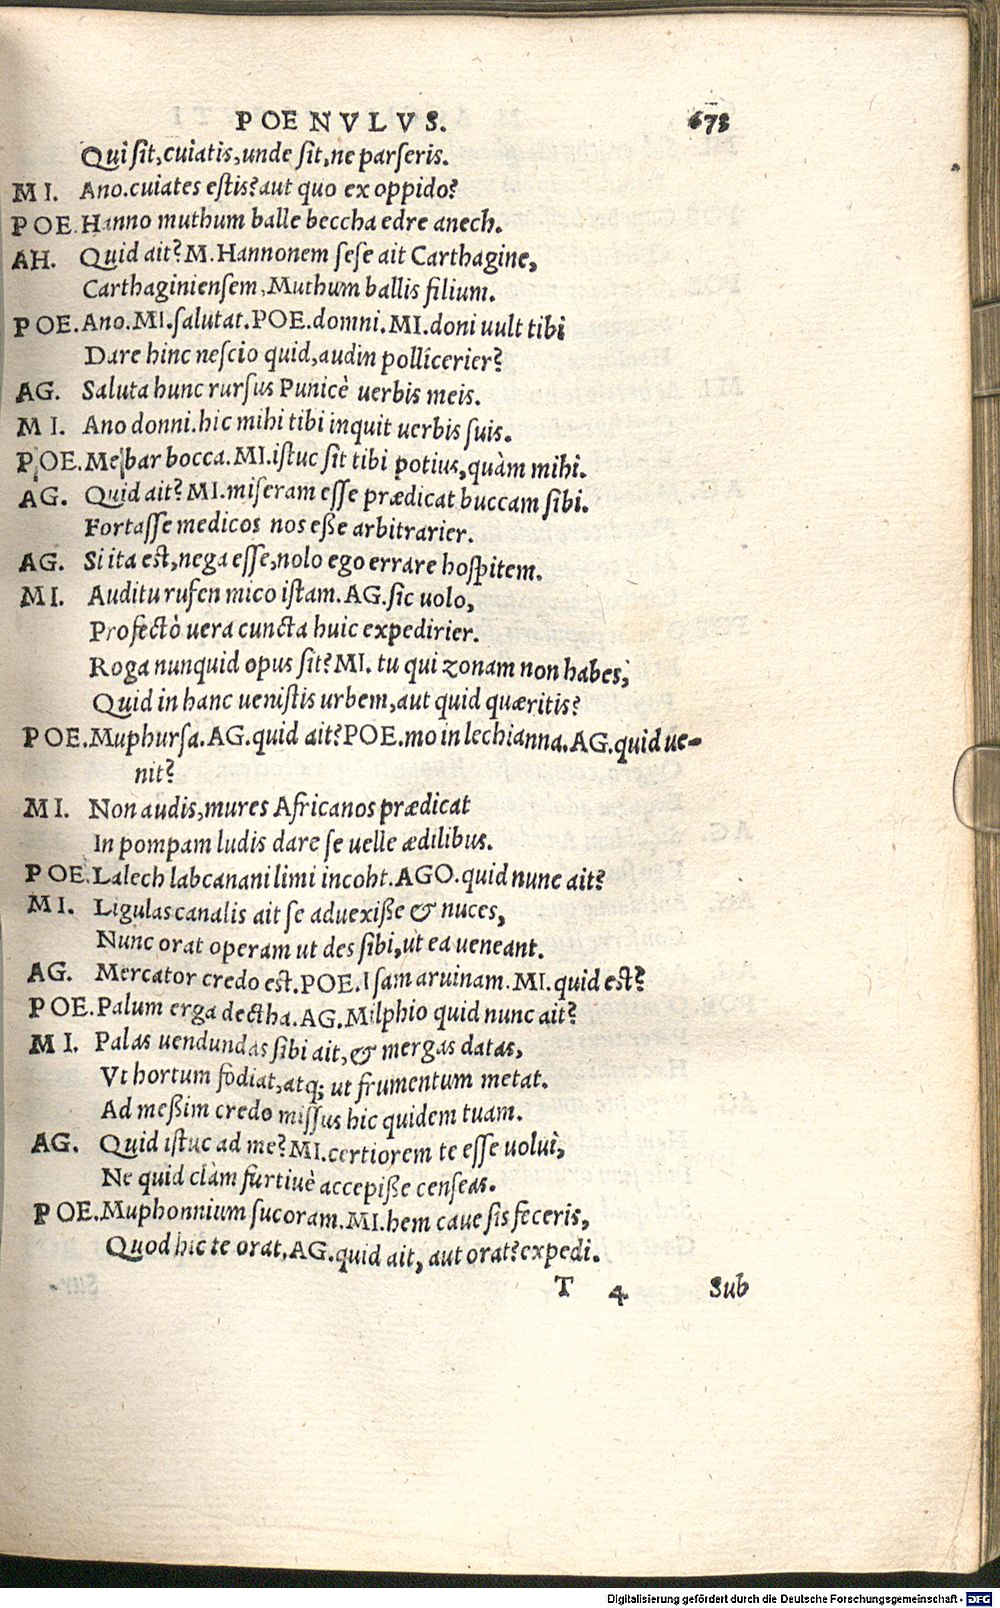 POENVLVS. 673
Qui sit, cuiatis, unde sit, ne parseris.
MI. Ano. cuiates estis? aut quo ex oppido?
POE. Hanno muthum balle beccha edre anech.
AH. Quid ait? M. Hannonem sese ait Carthagine,
Carthaginiensem, Muthum ballis filium.
POE. Ano. MI. salutat. POE. domni. MI. doni uult tibi
Dare hinc nescio quid, audin pollicerier?
AG. Saluta hunc rursus Punicè uerbis meis.
MI. Ano donni. hic mihi tibi inquit uerbis suis.
POE. Me bar bocca. MI. istuc sit tibi potius, quàm mihi.
AG. Quid ait? MI. miseram esse prædicat buccam sibi.
Fortasse medicos nos eße arbitrarier.
AG. Si ita est, nega esse, nolo ego errare hospitem.
MI. Auditu rufen mico istam. AG. sic uolo,
Profectò uera cuncta huic expedirier.
Roga nunquid opus sit? MI. tu qui zonam non habes,
Quid in hanc uenistis urbem, aut quid quæritis?
POE. Muphursa. AG. quid ait? POE. mo in lechianna. AG. quid ue-
nit?
MI. Non audis, mures Africanos prædicat
In pompam ludis dare se uelle ædilibus.
POE. Lalech labcanani limi incoht. AGO. quid nunc ait?
MI. Ligulas canalis ait se aduexiße & nuces,
Nunc orat operam ut des sibi, ut ea ueneant.
AG. Mercator credo est. POE. Isam aruinam. MI. quid est?
POE. Palum erga dectha. AG. Milphio quid nunc ait?
MI. Palas uendundas sibi ait, & mergas datas,
Vt hortum fodiat, atq; ut frumentum metat.
Ad meßim credo missus hic quidem tuam.
AG. Quid istuc ad me? MI. certiorem te esse uoluì,
Ne quid clàm furtiuè accepiße censeas.
POE. Muphonnium sucoram. MI. hem caue sis feceris,
Quod hic te orat. AG. quid ait, aut orat? expedi.
T 4 Sub
Digitalisierung gefördert durch die Deutsche Forschungsgemeinschaft - DFG